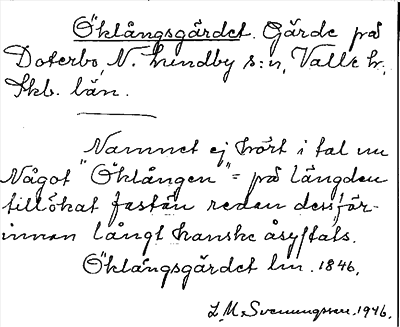 Öklångsgärdet. Gärde på
Doterbo, N. Lundby s:n, Valle hr,
Skb. län.
Namnet ej hört i tal nu
Något "Öklången" = på längden
tillökat fastän redan dessför-
innan långt kanske åsyftats.
Öklångsgärdet lm. 1846.
L. M. Svenungsson. 1946.